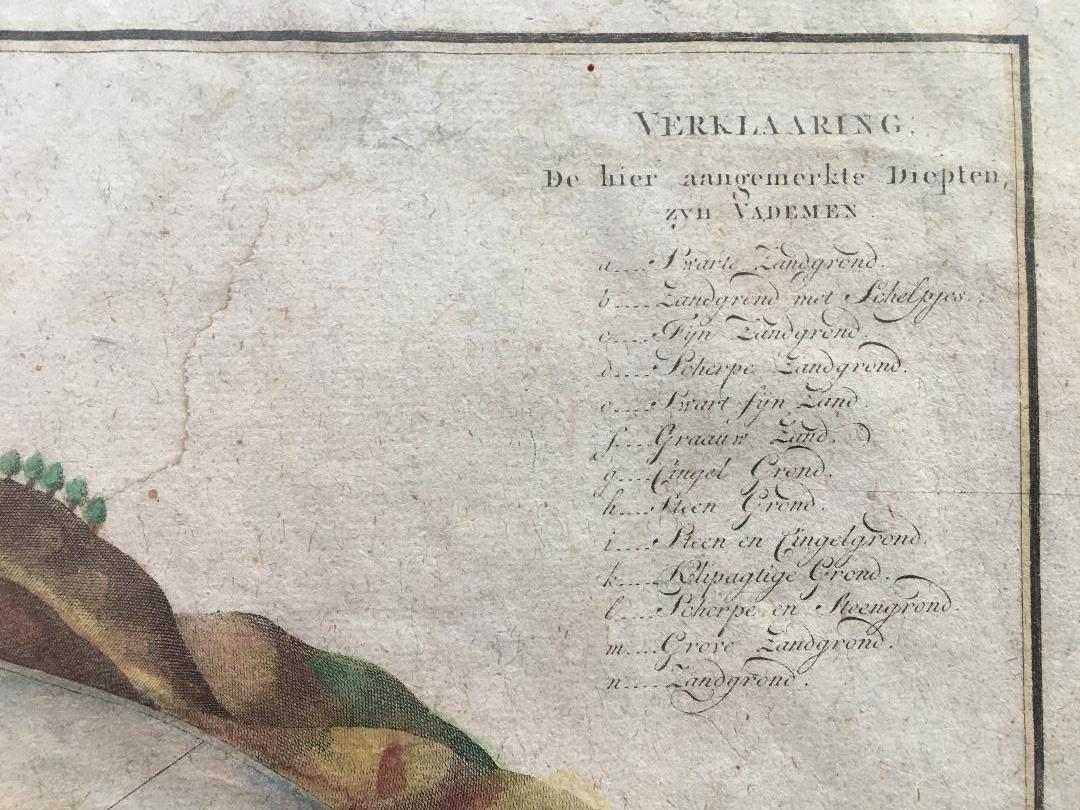 VERKLAARING.
De hier aangemerkte Diepten,
zyn VADEMEN
a.... Swarte Zandgrond.
b.... Zandgrond met Schelpjes.
c.... Fijn Zandgrond.
d.... Scherpe Zandgrond.
e.... Swart fijn Zand.
f.... Graauw Zand.
g.... Cingel Grond.
h.... Steen Grond.
i.... Steen en Cingelgrond.
k.... Klipagtige Grond.
l.... Scherpe en Steengrond.
m.... Grove Zandgrond.
n.... Zandgrond.